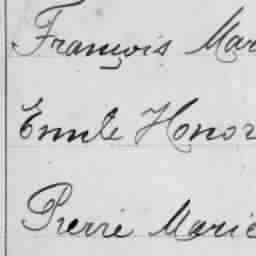 François Mar
Emile Honor
Pierre Marie